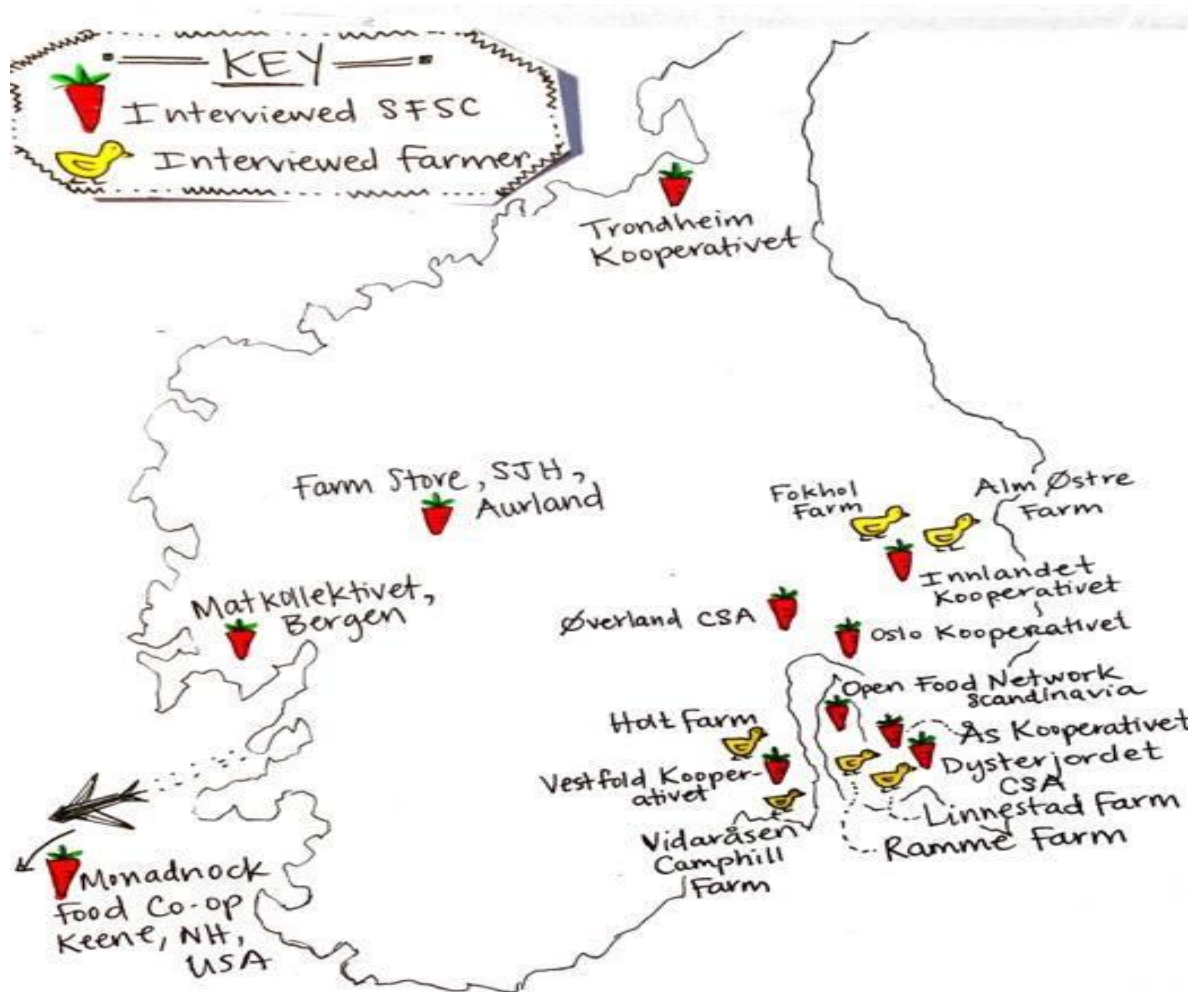 KEY
Interviewed SFSC
Interviewed farmer
Trondheim
Kooperativet
Farm Store, SJH,
Aurland
Fokhol
Farm
Alm Østre
Farm
Innlandet
Kooperativet
Matkollektivet,
Bergen
Øverland CSA
Oslo Kooperativet
Open Food Network
Scandinavia
Holt Farm
Ås Kooperativet
Vestfold Kooper-
ativet
Dysterjordet
CSA
Linnestad Farm
Ramme Farm
Vidaråsen
Camphill
Farm
Monadnock
Food Co-op
Keene, NH,
USA